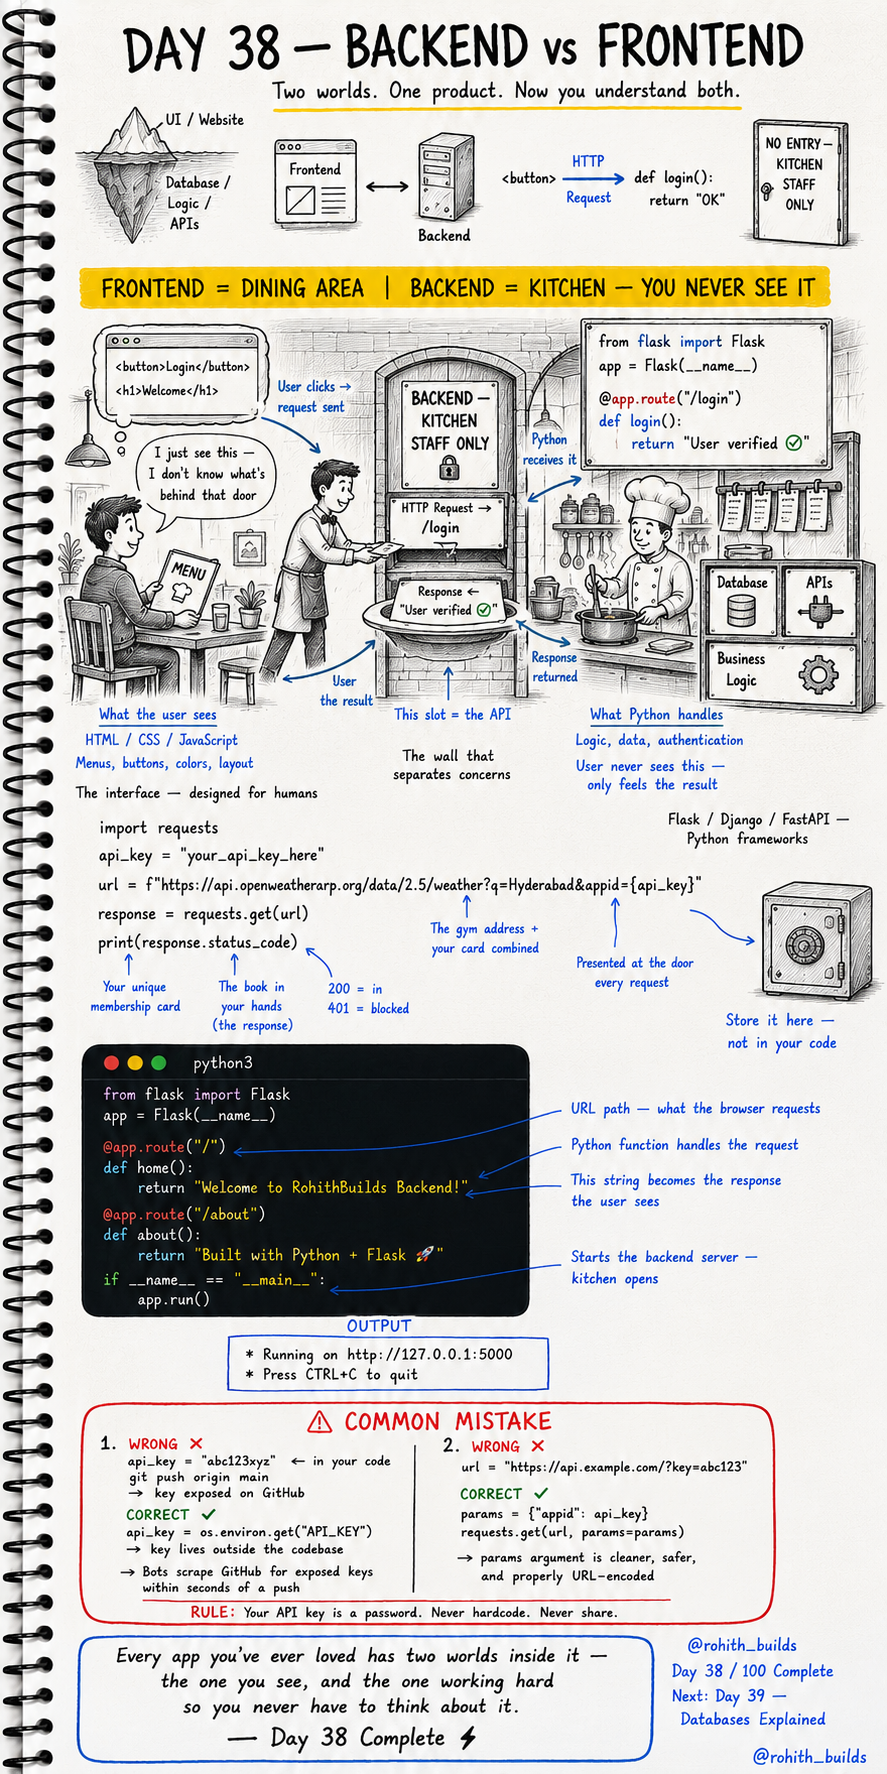 DAY 38 — BACKEND vs FRONTEND
Two worlds. One product. Now you understand both.
UI / Website
Database /
Logic /
APIs
Frontend
Backend
<button>
HTTP
Request
def login():
return "OK"
NO ENTRY—
KITCHEN
STAFF
ONLY
FRONTEND = DINING AREA | BACKEND = KITCHEN — YOU NEVER SEE IT
<button>Login</button>
<h1>Welcome</h1>
User clicks →
request sent
I just see this —
I don't know what's
behind that door
MENU
BACKEND —
KITCHEN
STAFF ONLY
HTTP Request →
/login
Response ←
"User verified ✓"
Python
receives it
from flask import Flask
app = Flask(__name__)
@app.route("/login")
def login():
return "User verified ✓"
Database
APIs
Business
Logic
User
the result
Response
returned
This slot = the API
The wall that
separates concerns
What the user sees
HTML / CSS / JavaScript
Menus, buttons, colors, layout
The interface — designed for humans
What Python handles
Logic, data, authentication
User never sees this —
only feels the result
Flask / Django / FastAPI —
Python frameworks
import requests
api_key = "your_api_key_here"
url = f"https://api.openweatherarp.org/data/2.5/weather?q=Hyderabad&appid={api_key}"
response = requests.get(url)
print(response.status_code)
The gym address +
your card combined
Presented at the door
every request
Your unique
membership card
The book in
your hands
(the response)
200 = in
401 = blocked
Store it here —
not in your code
python3
from flask import Flask
app = Flask(__name__)
@app.route("/")
def home():
return "Welcome to RohithBuilds Backend!"
@app.route("/about")
def about():
return "Built with Python + Flask 🚀"
if __name__ == "__main__":
app.run()
URL path — what the browser requests
Python function handles the request
This string becomes the response
the user sees
Starts the backend server —
kitchen opens
OUTPUT
* Running on http://127.0.0.1:5000
* Press CTRL+C to quit
⚠ COMMON MISTAKE
1. WRONG ✗
api_key = "abc123xyz" ← in your code
git push origin main
→ key exposed on GitHub
CORRECT ✓
api_key = os.environ.get("API_KEY")
→ key lives outside the codebase
→ Bots scrape GitHub for exposed keys
within seconds of a push
2. WRONG ✗
url = "https://api.example.com/?key=abc123"
CORRECT ✓
params = {"appid": api_key}
requests.get(url, params=params)
→ params argument is cleaner, safer,
and properly URL-encoded
RULE: Your API key is a password. Never hardcode. Never share.
Every app you've ever loved has two worlds inside it —
the one you see, and the one working hard
so you never have to think about it.
— Day 38 Complete ⚡
@rohith_builds
Day 38 / 100 Complete
Next: Day 39 —
Databases Explained
@rohith_builds